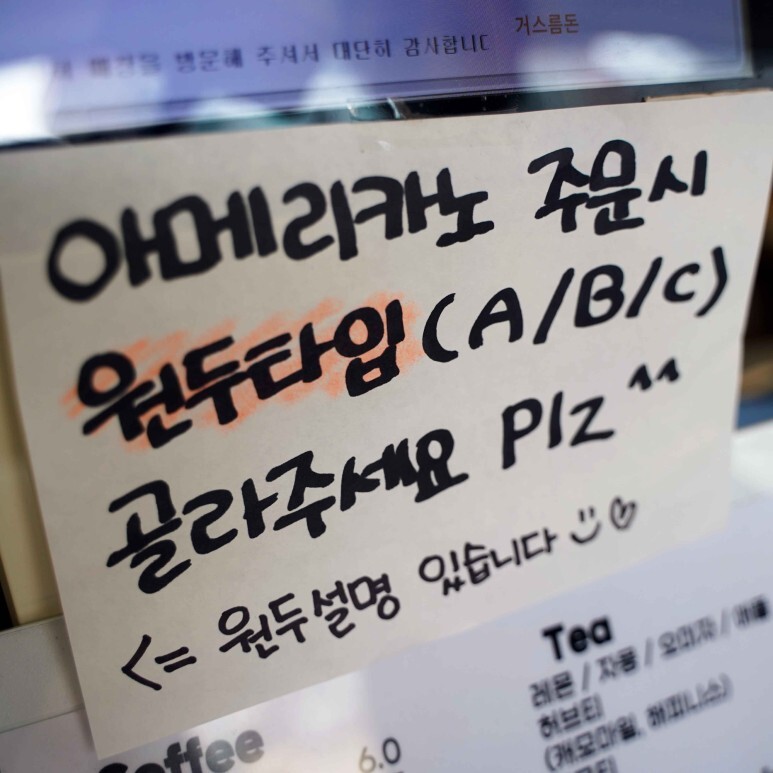 거스름돈
매장을 방문해 주셔서 대단히 감사합니다
아메리카노 주문시
원두타입(A/B/C)
골라주세요 Plz ^^
<= 원두설명 있습니다 :) ♡
Tea
레몬 / 자몽 / 오미자 / 애플
허브티
(캐모마일, 해피니스)
Coffee
6.0